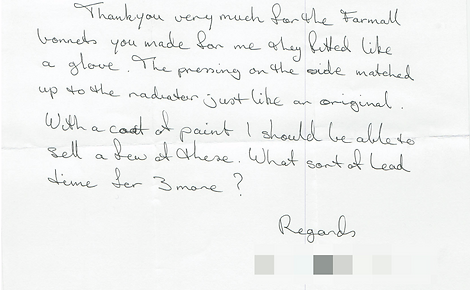 Thankyou very much for the Farmall
bonnets you made for me they fitted like
a glove. The pressing on the side matched
up to the radiator just like an original.
With a coat of paint I should be able to
sell a few of these. What sort of lead
time for 3 more ?
Regards